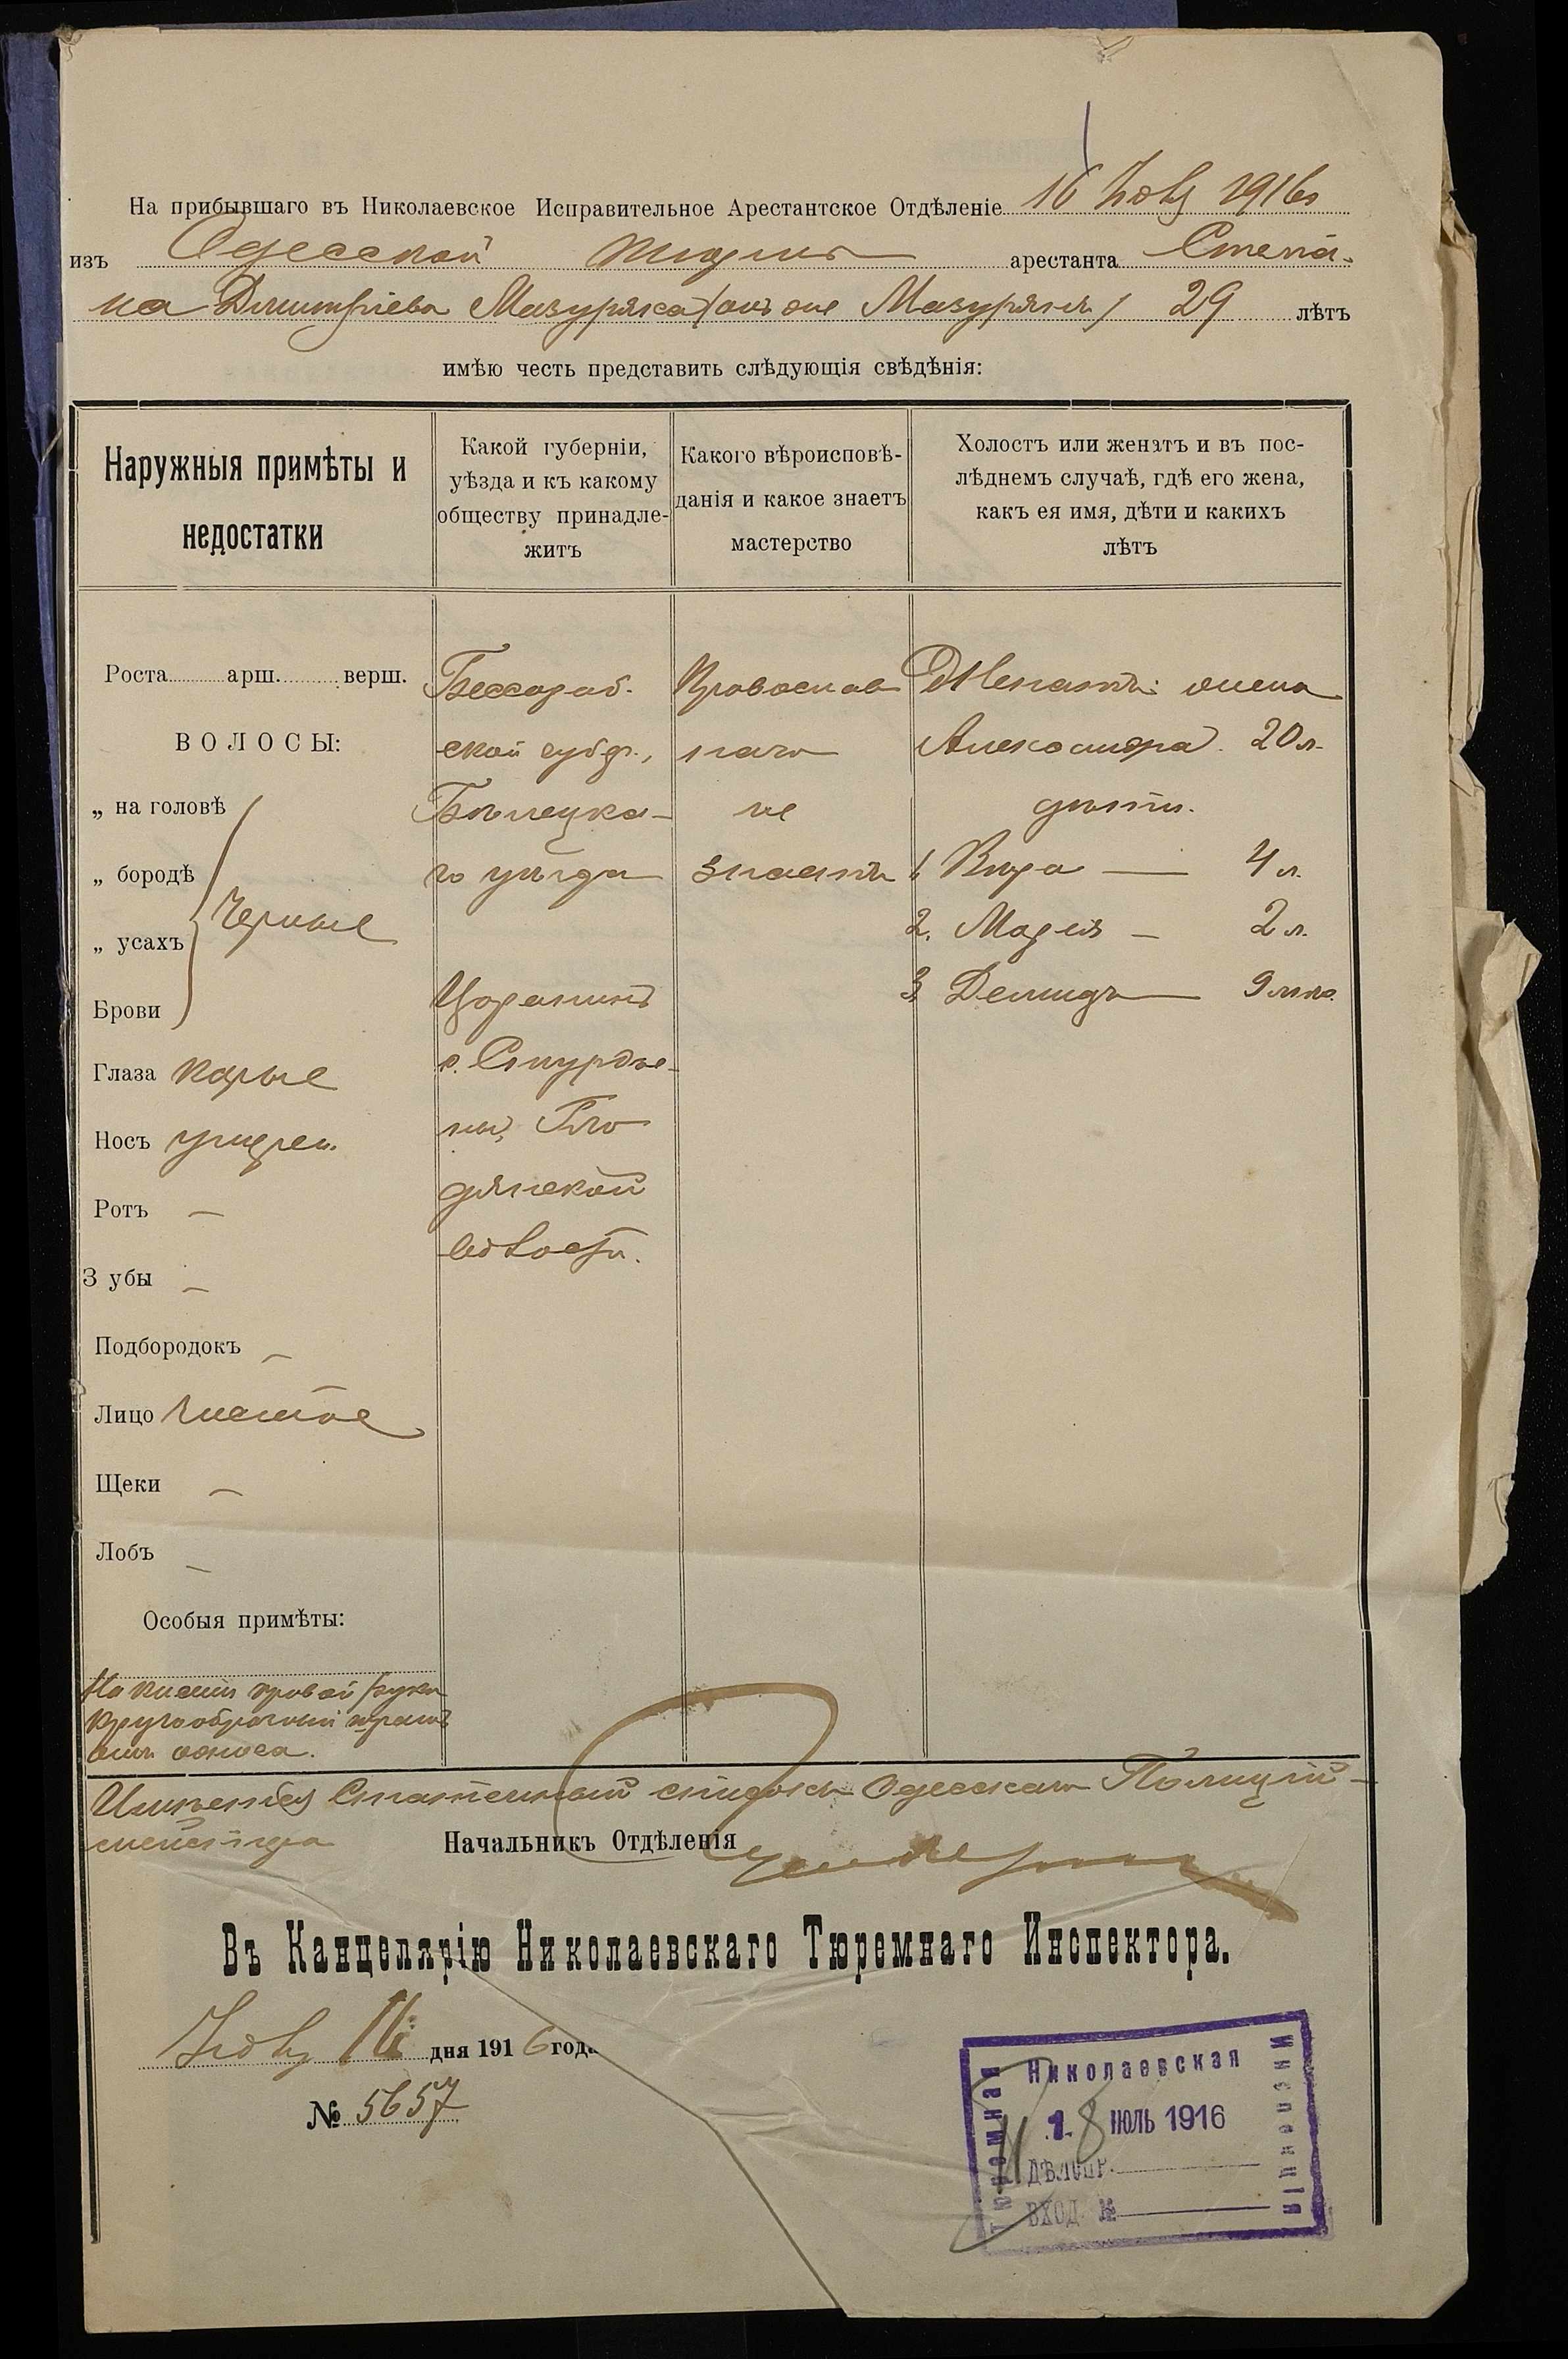 На прибывшаго въ Николаевское Исправительное Арестантское Отдѣленіе 16 Іюля 1916 г
изъ Одесской тюрьмы арестанта Степа-
на Дмитріева Мазуряка /онъ же Мазурякъ/ 29 лѣтъ
имѣю честь представить слѣдующія свѣдѣнія:
Наружныя примѣты и
недостатки
Какой губерніи,
уѣзда и къ какому
обществу принадле-
житъ
Какого вѣроисповѣ-
данія и какое знаетъ
мастерство
Холостъ или женатъ и въ пос-
лѣднемъ случаѣ, гдѣ его жена,
какъ ея имя, дѣти и какихъ
лѣтъ
Роста арш. верш.
ВОЛОСЫ:
„ на головѣ
„ бородѣ
„ усахъ
Брови
Черные
Глаза карые
Носъ умѣрен.
Ротъ —
Зубы —
Подбородокъ —
Лицо чистое
Щеки —
Лобъ —
Особыя примѣты:
На кисти правой руки
кругообразный шрамъ
отъ ожога.
Бессараб-
ской губер.,
Бѣлецка-
го уѣзда
Царанинъ
с. Стурдзе-
ны, Гло
дянской
волости.
Православ
наго
не
знаетъ
Женатъ: жена
Александра. 20 л.
дѣти.
1. Вѣра — 4 л.
2. Марія — 2 л.
3. Демидъ — 9 мѣс.
Имѣется Статейный списокъ Одесскаго Полицій-
мейстера
Начальникъ Отдѣленія
Въ Канцелярію Николаевскаго Тюремнаго Инспектора.
Іюля 16 дня 1916 года
№ 5657
Николаевская
Тюремная
Инспекція
18 ІЮЛЬ 1916
ДѢЛОПР.
ВХОД. №